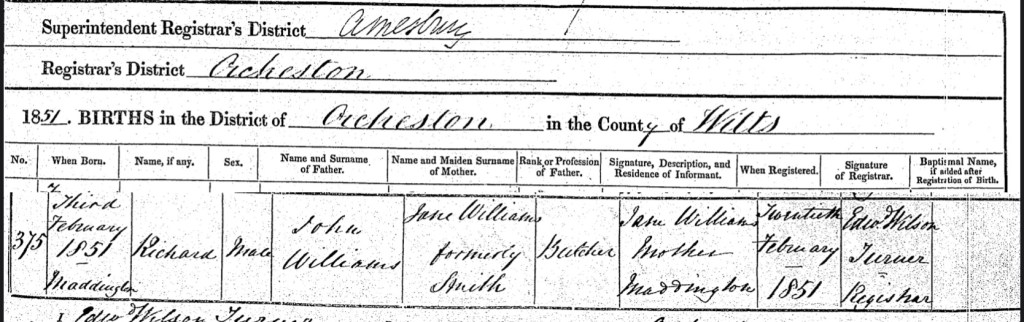 Superintendent Registrar's District Amesbury
Registrar's District Orcheston
1851. BIRTHS in the District of Orcheston in the County of Wilts
No. When Born. Name, if any. Sex. Name and Surname of Father. Name and Maiden Surname of Mother. Rank or Profession of Father. Signature, Description, and Residence of Informant. When Registered. Signature of Registrar. Baptismal Name, if added after Registration of Birth.
375
Third
February
1851
Maddington
Richard
Male
John
Williams
Jane Williams
formerly
Smith
Butcher
Jane Williams
Mother
Maddington
Twentieth
February
1851
Edwd Wilson
Turner
Registrar
I Edwd Wilson Turner